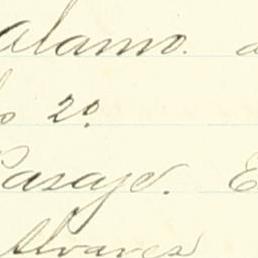 alamo. a
o 2º.
Pasaje. E
Alvarez